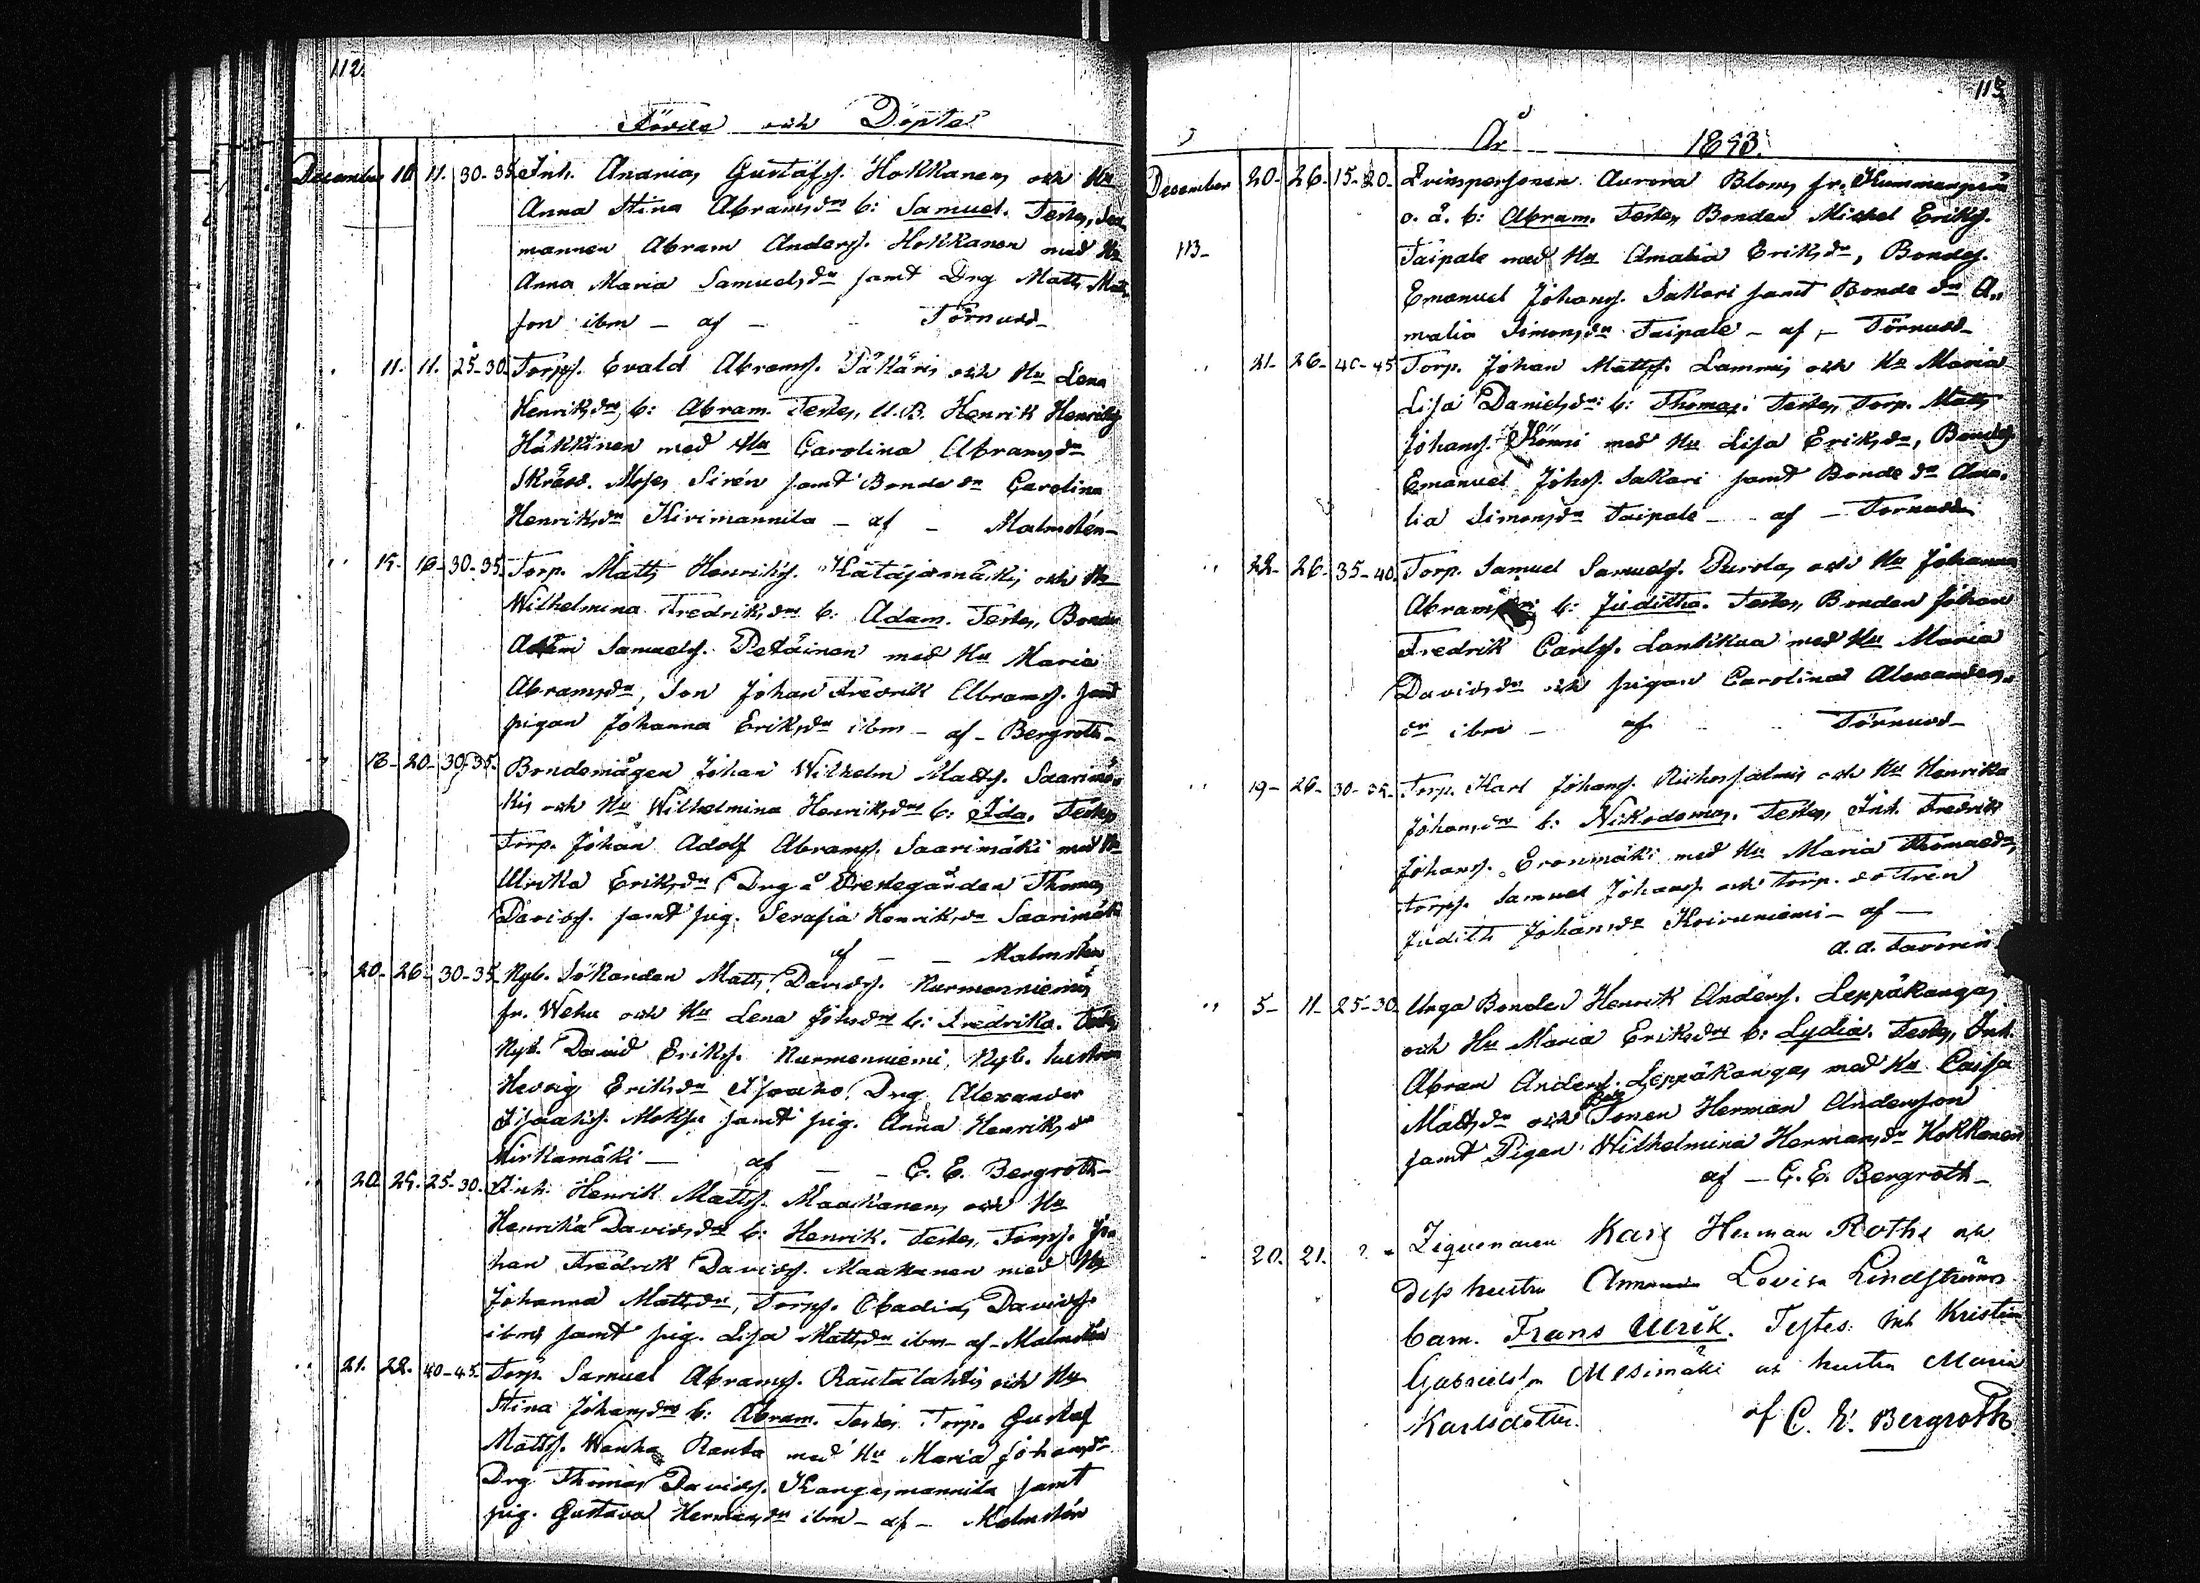 112.
Födde och Döpte
December 10 11. 30-35 Inh. Ananias Gustafss. Hokkanens och Hu
Anna Stina Abramsdrs b: Samuel. Testes,
mannen Abram Anderss. Hokkanen med Hu
Anna Maria Samuelsdr samt Drg Matts Matts
son ibm - af - Törnudd-
11. 11. 25-30 Torps. Evald Abramss. och Hu Lena
Henriksdrs b: Abram. Testes, U.B. Henrik Henrikss
Häkkinen med Hu Carolina Abramsdr
Skrädd. Moses Sirén samt Bonde dr Carolina
Henriksdr Kivimannila - af - Malmstén-
30-35. Torp. Matts Henrikss. Katajamäkis och Hu
Wilhelmina Fredriksdrs b: Adam. Testes, Bonden
Adam Samuelss. Petäinen med Hu Maria
Abramsdr, Son Johan Fredrik Abramss. samt
pigan Johanna Eriksdr ibm - af - Bergroth-
18- 20- 30-35. Bondemågen Johan Wilhelm Mattss. Saarimä
kis och Hu Wilhelmina Henriksdrs b: Ida. Testes
Torp. Johan Adolf Abramss. Saarimäki med Hu
Ulrika Eriksdr, Drg å Prestegården Thomas
Davidss. samt pig. Serafia Henriksdr Saarimäki
af - - Malmstén
20- 26- 30-35 Nyb. Sökanden Matts Davidss. Nurmenniemis
fr. Wehu och Hu Lena Johsdrs b: Fredrika. Testes
Nyb. David Erikss. Nurmenniemi, Nyb. hustrun
Hedvig Eriksdr Isoaho, Drg Alexander
Isaakss. Moksu samt pig. Anna Henriksdr
Mirkamäki - af - - C. E. Bergroth-
20. 25-30. Inh. Henrik Mattss. Maakanens och Hu
Henrika Davidsdrs b: Henrik. Testes, Torps. Jo
han Fredrik Davidss. Maakanen med Hu
Johanna Mattsdr, Torps. Obadias Davidss.
ibm samt pig. Lisa Mattsdr ibm - af - Malmstén
21. 22. 40-45. Torp. Samuel Abramss. Rautalahtis och Hu
Stina Johansdrs b: Abram. Testes Torp. Gustaf
Mattss. Wanha Ranta med Hu Maria Johansdr
Drg Thomas Davidss. Kangasmannila samt
pig. Gustava Hermansdr ibm - af - Malmstén
113
År 1893.
December 20- 26- 15-20- Qvinspersonen Aurora Bloms fr. Kummunperä
o. ä. b: Abram. Testes, Bonden Mickel Erikss.
113- Taipale med Hu Amalia Eriksdr, Bondes.
Emanuel Johanss. Sakari samt Bonde dr A-
malia Simonsdr Taipale - af - Törnudd-
21- 26- 40-45 Torp. Johan Mattss. Lammis och Hu Maria
Lisa Danielsdrs b: Thomas. Testes, Torp. Matts
Johanss. Könni med Hu Lisa Eriksdr, Bondes
Emanuel Johss. Sakari samt Bonde dr Ama-
lia Simonsdr Taipale - af - Törnudd
22- 26- 35-40. Torp. Samuel Samuelss. Purolas och Hu Johanna
b: Juditha. Testes, Bonden Johan
Fredrik Carlss. Lantikka med Hu Maria
Davidsdr och pigan Carolina Alexanders-
dr ibm - af Törnudd-
19- 26- Torp. Karl Johanss. och Hu Henrika
Johansdrs b: Nikodemus. Testes, Inh. Fredrik
Johanss. Eronmäki med Hu Maria Thomasdr,
Torps. Samuel Johanss och Torp. dottren
Judith Johansdr Koivuniemi - af -
A. A. Favorin
5- 11- 25-30 Unga Bonden Henrik Anderss. Leppäkangas
och Hu Maria Eriksdrs b: Lydia. Testes, Inh.
Abram Anderss. Leppäkangas med Hu Caisa
Mattsdr och Sonen Herman Andersson
samt Pigan Wilhelmina Hermansdr Hokkanen
af - C. E. Bergroth-
20. 21. ? Ziguenaren Karl Herman Roths och
dess hustru Lovisa Lindströms
barn. Frans Ulrik. Testes. Inh Kristian
Gabrielsson Mesimäki och hustru Maria
Karlsdotter. af C. E. Bergroth